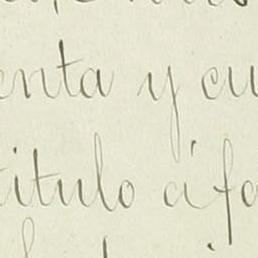 enta y cu
título á fo